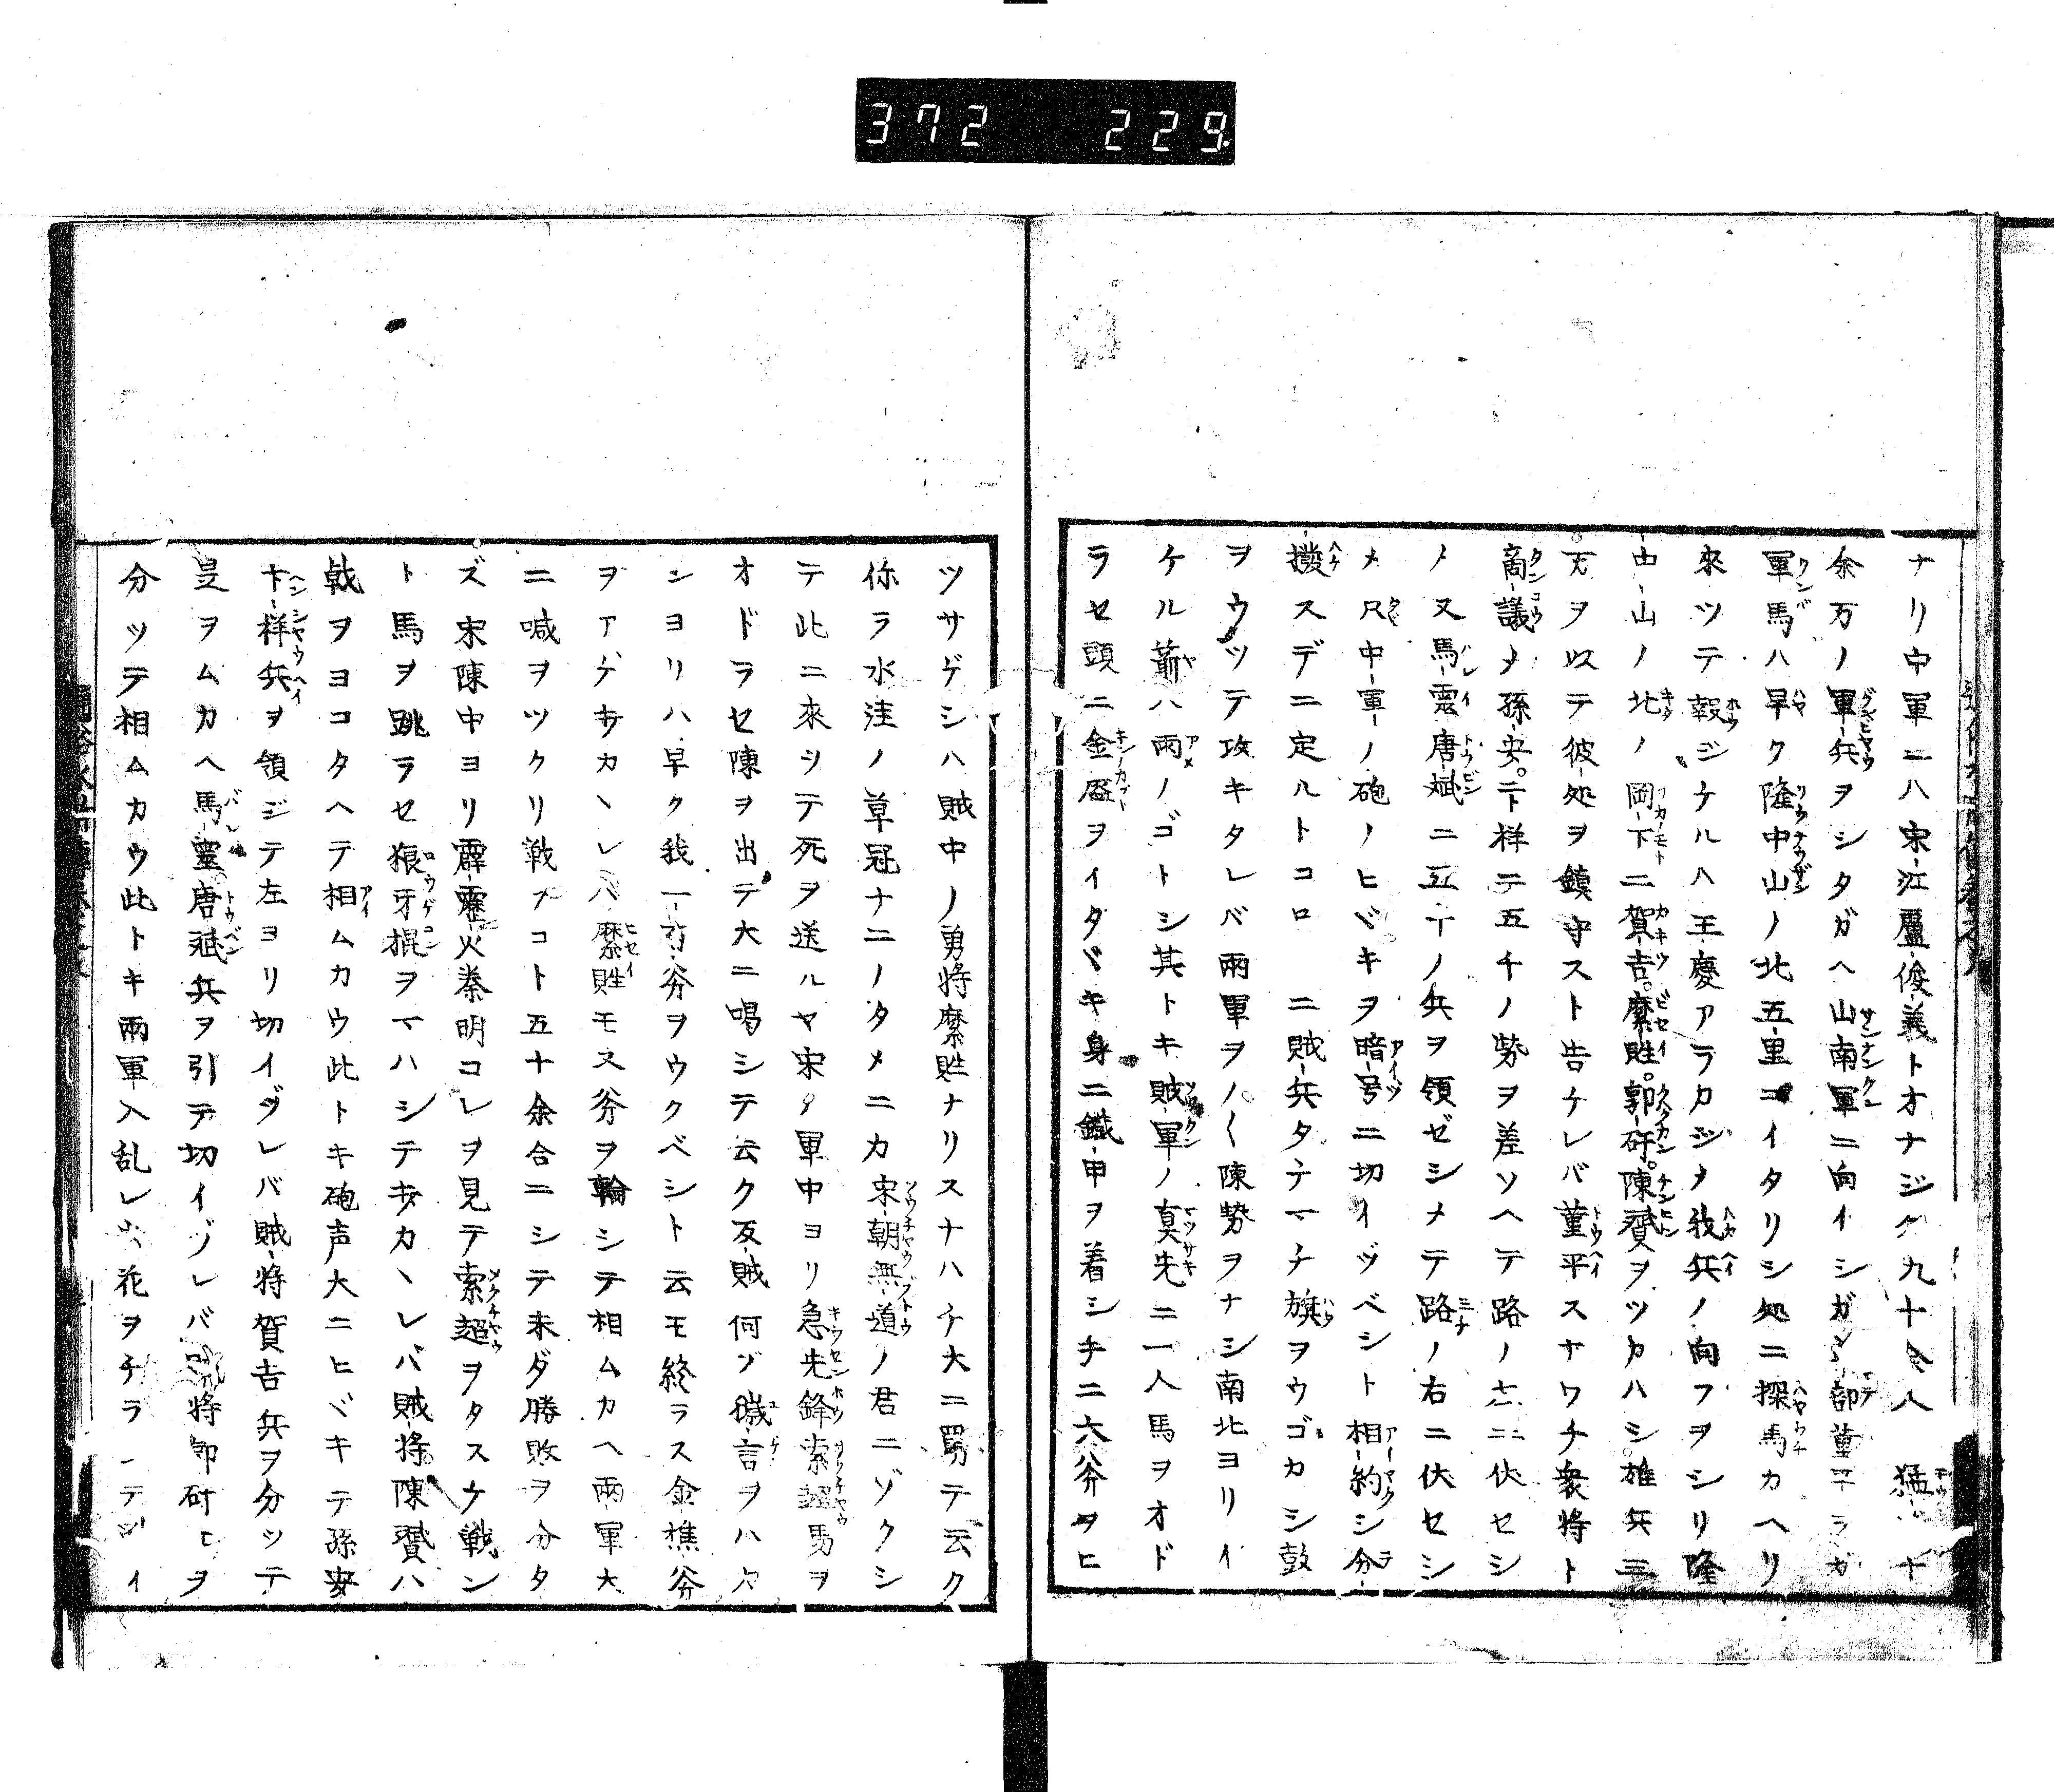 372 229
ナリ中軍ニハ宋江盧俊義トオナジク九十余人猛 十
余万ノ軍兵ヲシタガヘ山南軍ニ向イシガ 部董平ラガ
軍馬ハ早ク隆中山ノ北五里ニイタリシ処ニ探馬カヘリ
來ツテ報ジケルハ王慶アラカジメ我兵ノ向フヲシリ隆
中山ノ北ノ岡下ニ賀吉。縻貹。郭矸。陳贇ヲツカハシ雄兵三
万ヲ以テ彼処ヲ鎮守スト告ケレバ董平スナワチ衆将ト
商議メ孫安。卞祥ニ五千ノ勢ヲ差ソヘテ路ノ左ニ伏セシ
メ又馬霊唐斌ニ五千ノ兵ヲ領ゼシメテ路ノ右ニ伏セシ
メ只中軍ノ砲ノヒヾキヲ暗号ニ切イヅベシト相約シ分
撥スデニ定ルトコロ ニ賊兵タチマチ旗ヲウゴカシ鼓
ヲウツテ攻キタレバ兩軍ヲノ〱陳勢ヲナシ南北ヨリイ
ケル箭ハ雨ノゴトシ其トキ賊軍ノ真先ニ一人馬ヲオド
ラセ頭ニ金盔ヲイタヾキ身ニ鐵甲ヲ着シ手ニ大斧ヲヒ
ツサゲシハ賊中ノ勇将縻貹ナリスナハチ大ニ罵テ云ク
你ラ水洼ノ草冦ナニノタメニカ宋朝無道ノ君ニゾクシ
テ此ニ來シテ死ヲ送ルヤ宋 軍中ヨリ急先鋒索超馬ヲ
オドラセ陳ヲ出テ大ニ喝シテ云ク反賊何ゾ穢言ヲハク
ンヨリハ早ク我一 斧ヲウクベシト云モ終ラス金樵斧
ヲアゲキサカヽレバ縻貹モ又斧ヲ輪シテ相ムカヘ兩軍大
ニ喊ヲツクリ戦フコト五十余合ニシテ未ダ勝敗ヲ分タ
ズ宋陳中ヨリ霹靂火秦明コレヲ見テ索超ヲタスケ戦ン
ト馬ヲ跳ラセ狼牙掍ヲマハシテキサカヽレバ賊将陳贇ハ
戟ヲヨコタヘテ相ムカウ此トキ砲声大ニヒヾキテ孫安
卞祥兵ヲ領ジテ左ヨリ切イヅレバ賊将賀吉兵ヲ分ツテ
是ヲムカヘ馬霊唐斌兵ヲ引テ切イヅレバ 将郭矸ヒヲ
分ツテ相ムカウ此トキ兩軍入乱レ 花ヲチラ テ イ